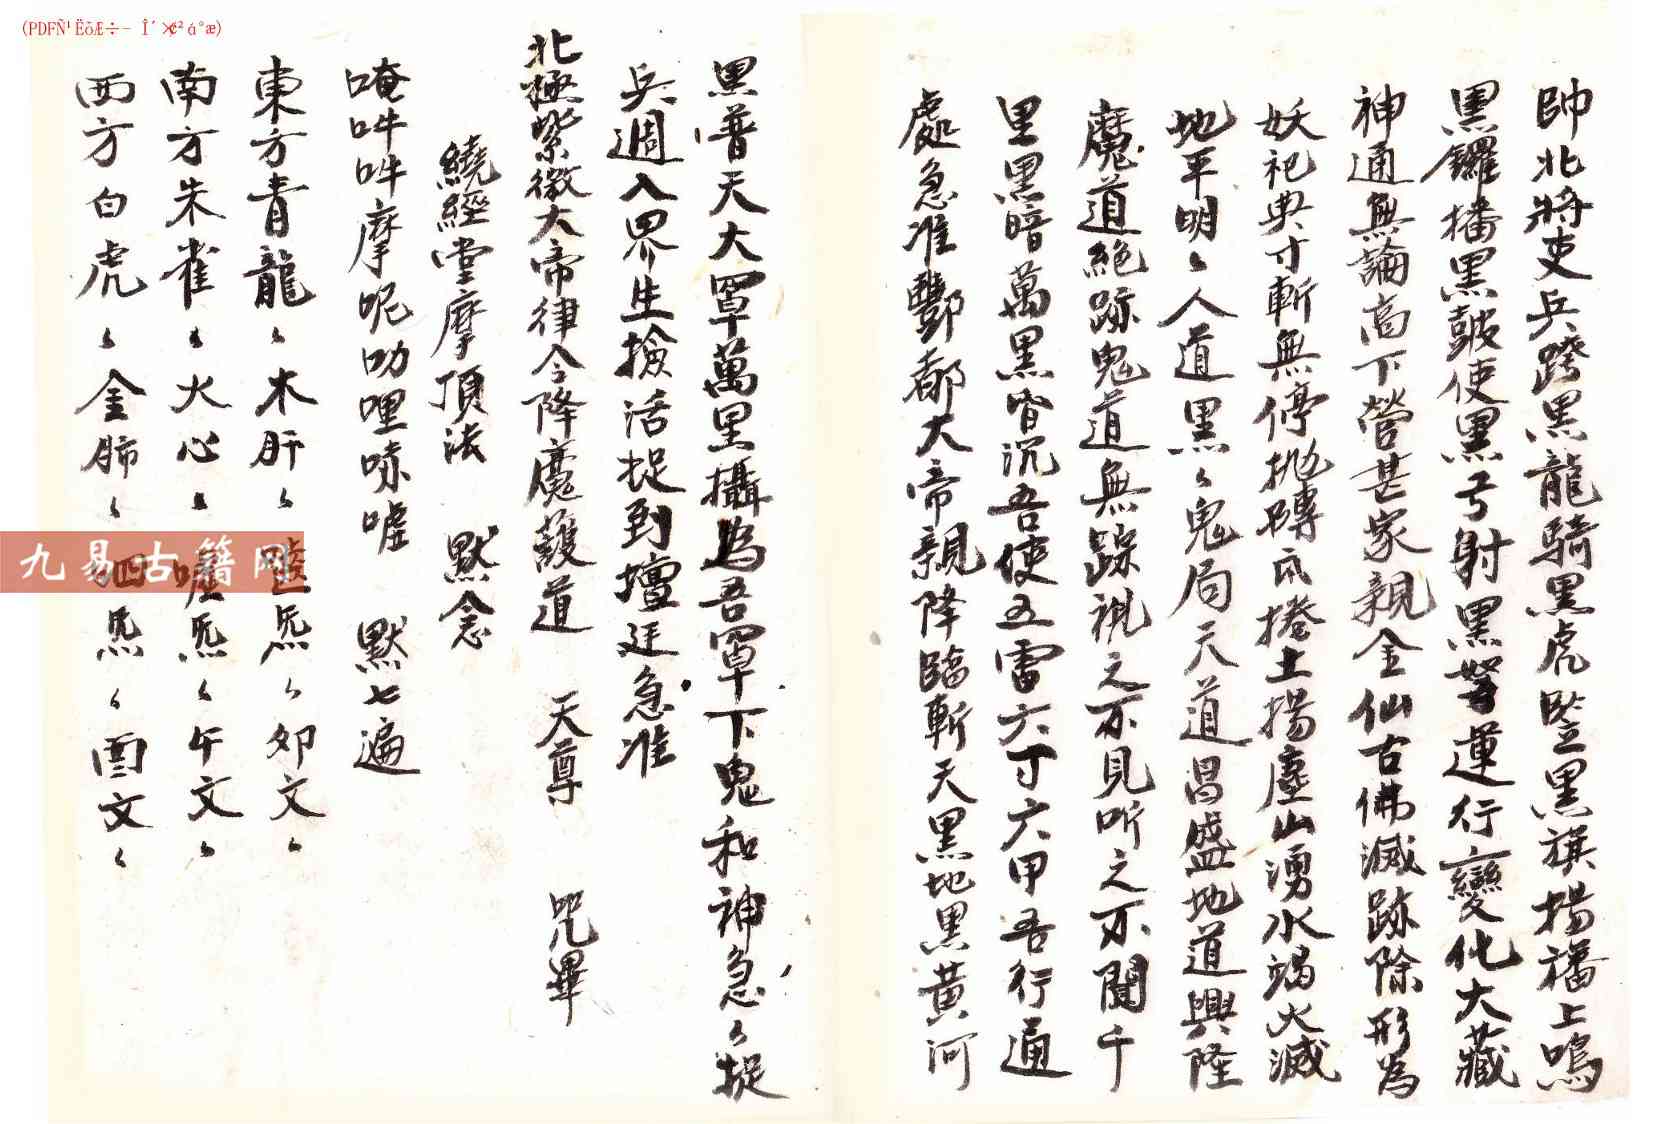 帥北將吏兵跨黑龍騎黑虎豎黑旗揚旛上鳴
黑鑼播黑鼓使黑弓射黑弩運行變化大藏
神通無論高下營甚家親金仙古佛滅跡除形為
妖祀典寸斬無停拋磚瓦捲土揚塵山湧水竭火滅
地平明〻人道黑〻鬼局天道昌盛地道興隆
魔道絕跡鬼道無踪視之不見听之不聞千
里黑暗萬黑昏沉吾使五雷六丁六甲吾行通
處急准酆都大帝親降臨斬天黑地黑黄河
黑普天大罩萬里攝為吾罩下鬼和神急〻捉
兵週入界生擒活捉到壇廷急准
北極紫微大帝律令降魔護道 天尊 咒畢
繞經堂摩頂法 默念
唵吽吽摩呢叻哩味嘘 默七遍
東方青龍〻木肝〻炁〻卯文〻
南方朱雀〻火心〻嘘炁〻午文〻
西方白虎〻金肺〻呬炁〻酉文〻
九易古籍网